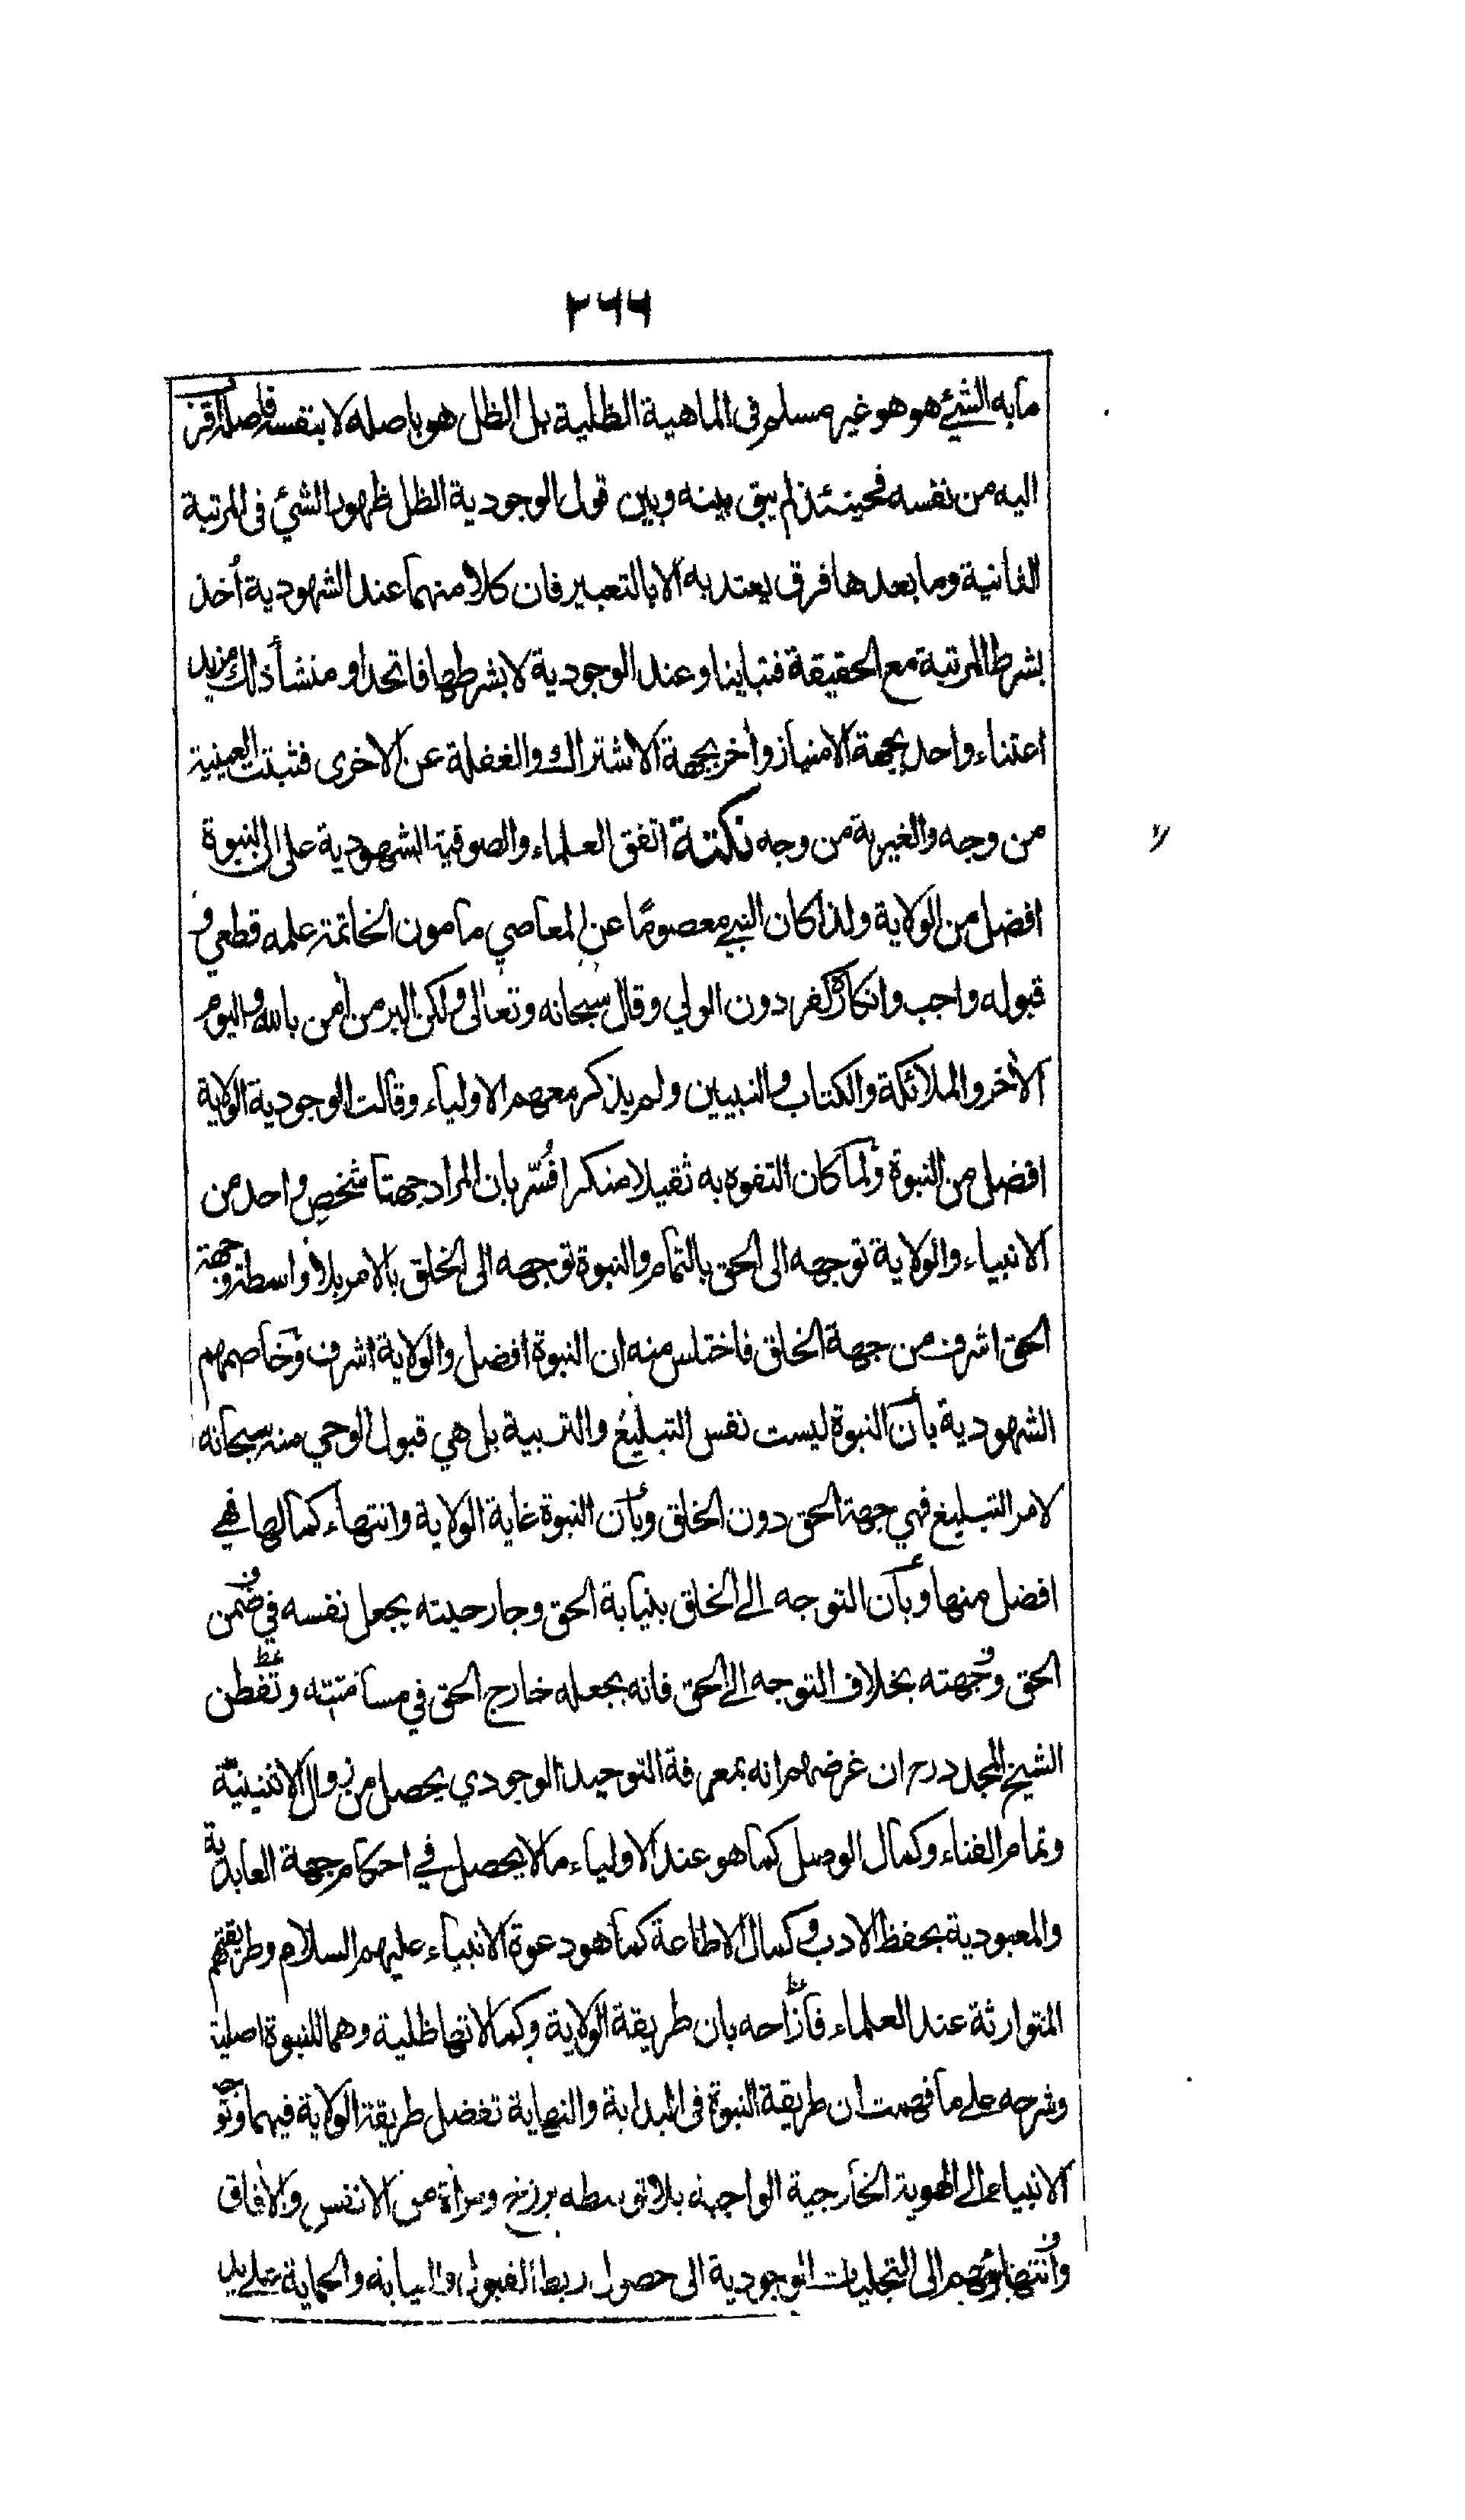 ٢٦٦
مابه الشيء هو هو غير مسلم فى الماهية الظلية بل الظل هو باصله لا بنفسه فاصله اقرب
اليه من نفسه فحينئذ لم يبق بينه وبين قول الوجودية الظل ظهور الشئ فى المرتبة
الثانية وما بعدها فرق يعتد به الا بالتعبير فان كلا منهما عند الشهودية أخذ
بشرط المرتبة مع الحقيقة فتباينا وعند الوجودية لا بشرطها فاتحدا ومنشأ ذلك مزيد
اعتناء واحد بجهة الامتياز وأخر بجهة الاشتراك والغفلة عن الاخرى فثبتت العينية
من وجه والغيرية من وجه نكتة اتفق العلماء والصوفية الشهودية على ان النبوة
افضل من الولاية ولذا كان النبي معصومًا عن المعاصي مامون الخاتمة علمه قطعي و
قبوله واجب وانكاره كفر دون الولي وقال سبحانه وتعالى ولكن البر من أمن بالله واليوم
الأخر والملائكة والكتاب والنبيين ولم يذكر معهم الاولياء وقالت الوجودية الولاية
افضل من النبوة ولما كان التفوه به ثقيلا منكرا فُسّر بان المراد جهتا شخص واحد من
الانبياء والولاية توجهه الى الحق بالتمام والنبوة توجهه الى الخلق بالامر بلا واسطة وجهة
الحق اشرف من جهة الخلق فاختلس منه ان النبوة افضل والولاية اشرف وخاصمهم
الشهودية بأن النبوة ليست نفس التبليغ والتربية بل هي قبول الوحي منه سبحانه
لامر التبليغ فهي جهة الحق دون الخلق وبأن النبوة غاية الولاية وانتهاء كمالها فهي
افضل منها وبأن التوجه الى الخلق بنيابة الحق وجارحيته يجعل نفسه في ضمن
الحق وجهته بخلاف التوجه الى الحق فانه يجعله خارج الحق في مسامتته وتفطن
الشيخ المجدد رح ان غرضهم انه بمعرفة التوحيد الوجودي يحصل من زوال الاثنينيّة
وتمام الفناء وكمال الوصل كما هو عند الاولياء مالا يحصل في احكام جهة العابدية
والمعبودية بحفظ الادب وكمال الاطاعة كما هو دعوة الانبياء عليهم السلام وطريقتهم
المتوارثة عند العلماء فأزاحه بان طريقة الولاية وكمالاتها ظلية وهما للنبوة اصلية
وشرحه على ما فهمت ان طريقة النبوة فى البداية والنهاية تفضل طريقة الولاية فيهما وتوجه
الانبياء الى الهوية الخارجية الواجبة بلا توسطه برزخ ومرأة من الانفس والأفاق
وانتهاؤهم الى التجليات الوجودية الى حصول ربط القبول والنيابة والحماية على يد